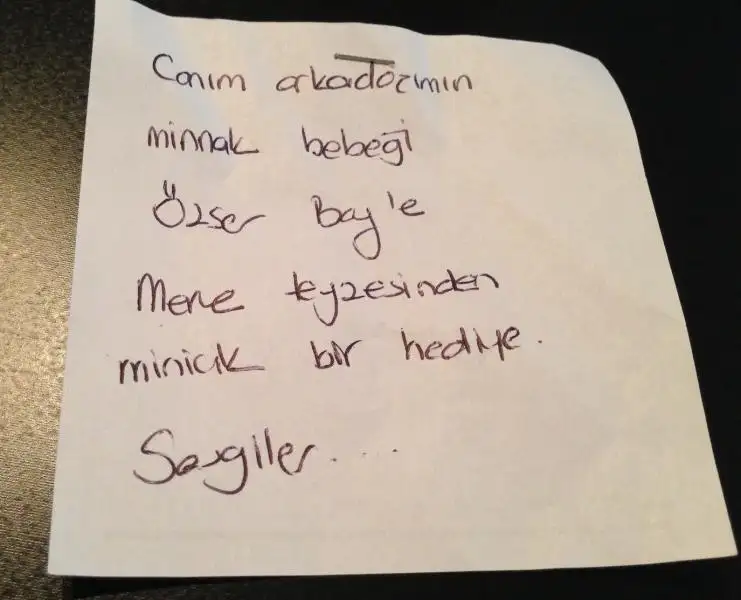 Canım arkadaşımın
minnak bebeği
Özser Bay'e
Mene teyzesinden
minicik bir hediye.
Saygılar....